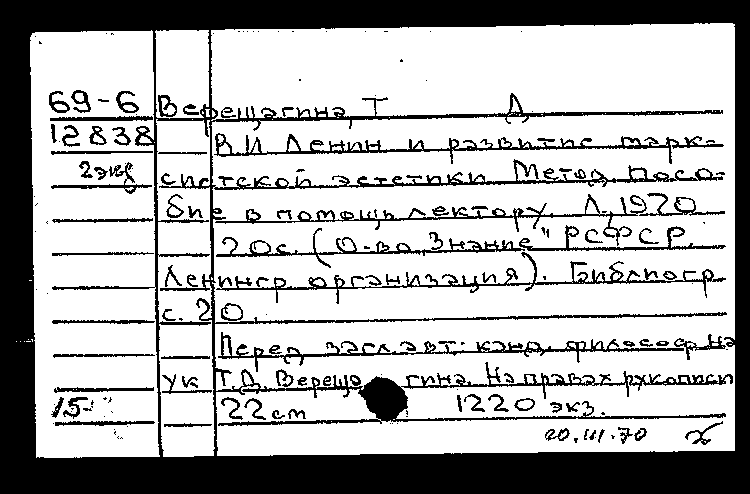 69-6 Верещагина, Т Д
12838 В.И Ленин и развитие марк-
2экз систской эстетики Метод. посо-
бие в помощь лектору. Л., 1970
20с. (О-во „Знание" РСФСР.
Ленингр организация). Библиогр
с. 20.
Перед загл. авт: канд. философ на
ук Т.Д. Верещагина. На правах рукописи
15- 22см 1220 экз.
20.III.70